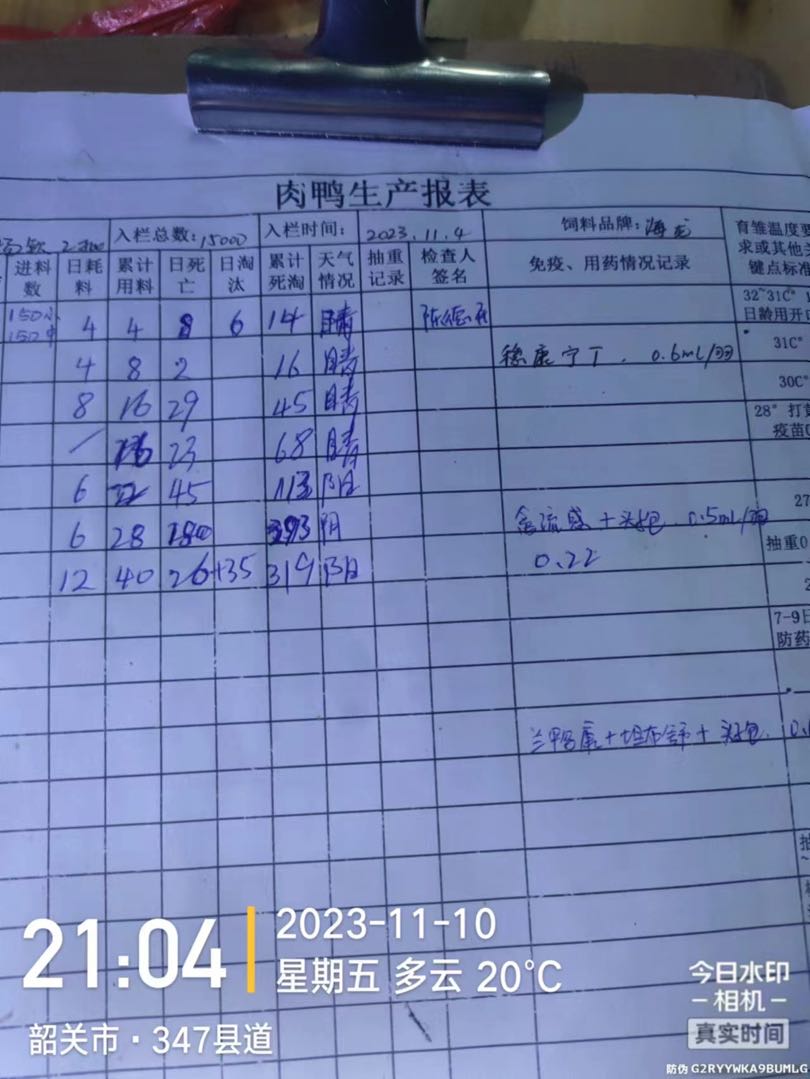 肉鸭生产报表
入栏总数:15000 入栏时间: 2023.11.4 饲料品牌:海龙 育雏温度要
求或其他关
键点标准
进料数 日耗料 累计用料 日死亡 日淘汰 累计死淘 天气情况 抽重记录 检查人签名 免疫、用药情况记录
32~31C°
日龄用开
150小
150中 4 4 8 6 14 晴
4 8 2 16 晴 0.6ml/羽 31C°
30C°
8 16 29 45 晴 28° 打
疫苗0
/ 16 23 68 晴
6 45 113 阴 27
6 28 180 293 阴 禽流感+头孢 0.5ml/羽
抽重0
12 40 26+35 319 阴 0.22 2
7-9日
防药
+头孢 0.
抽
~
21:04
2023-11-10
星期五 多云 20°C
韶关市·347县道
今日水印
-相机-
真实时间
防伪 G2RYYWKA9BUMLC